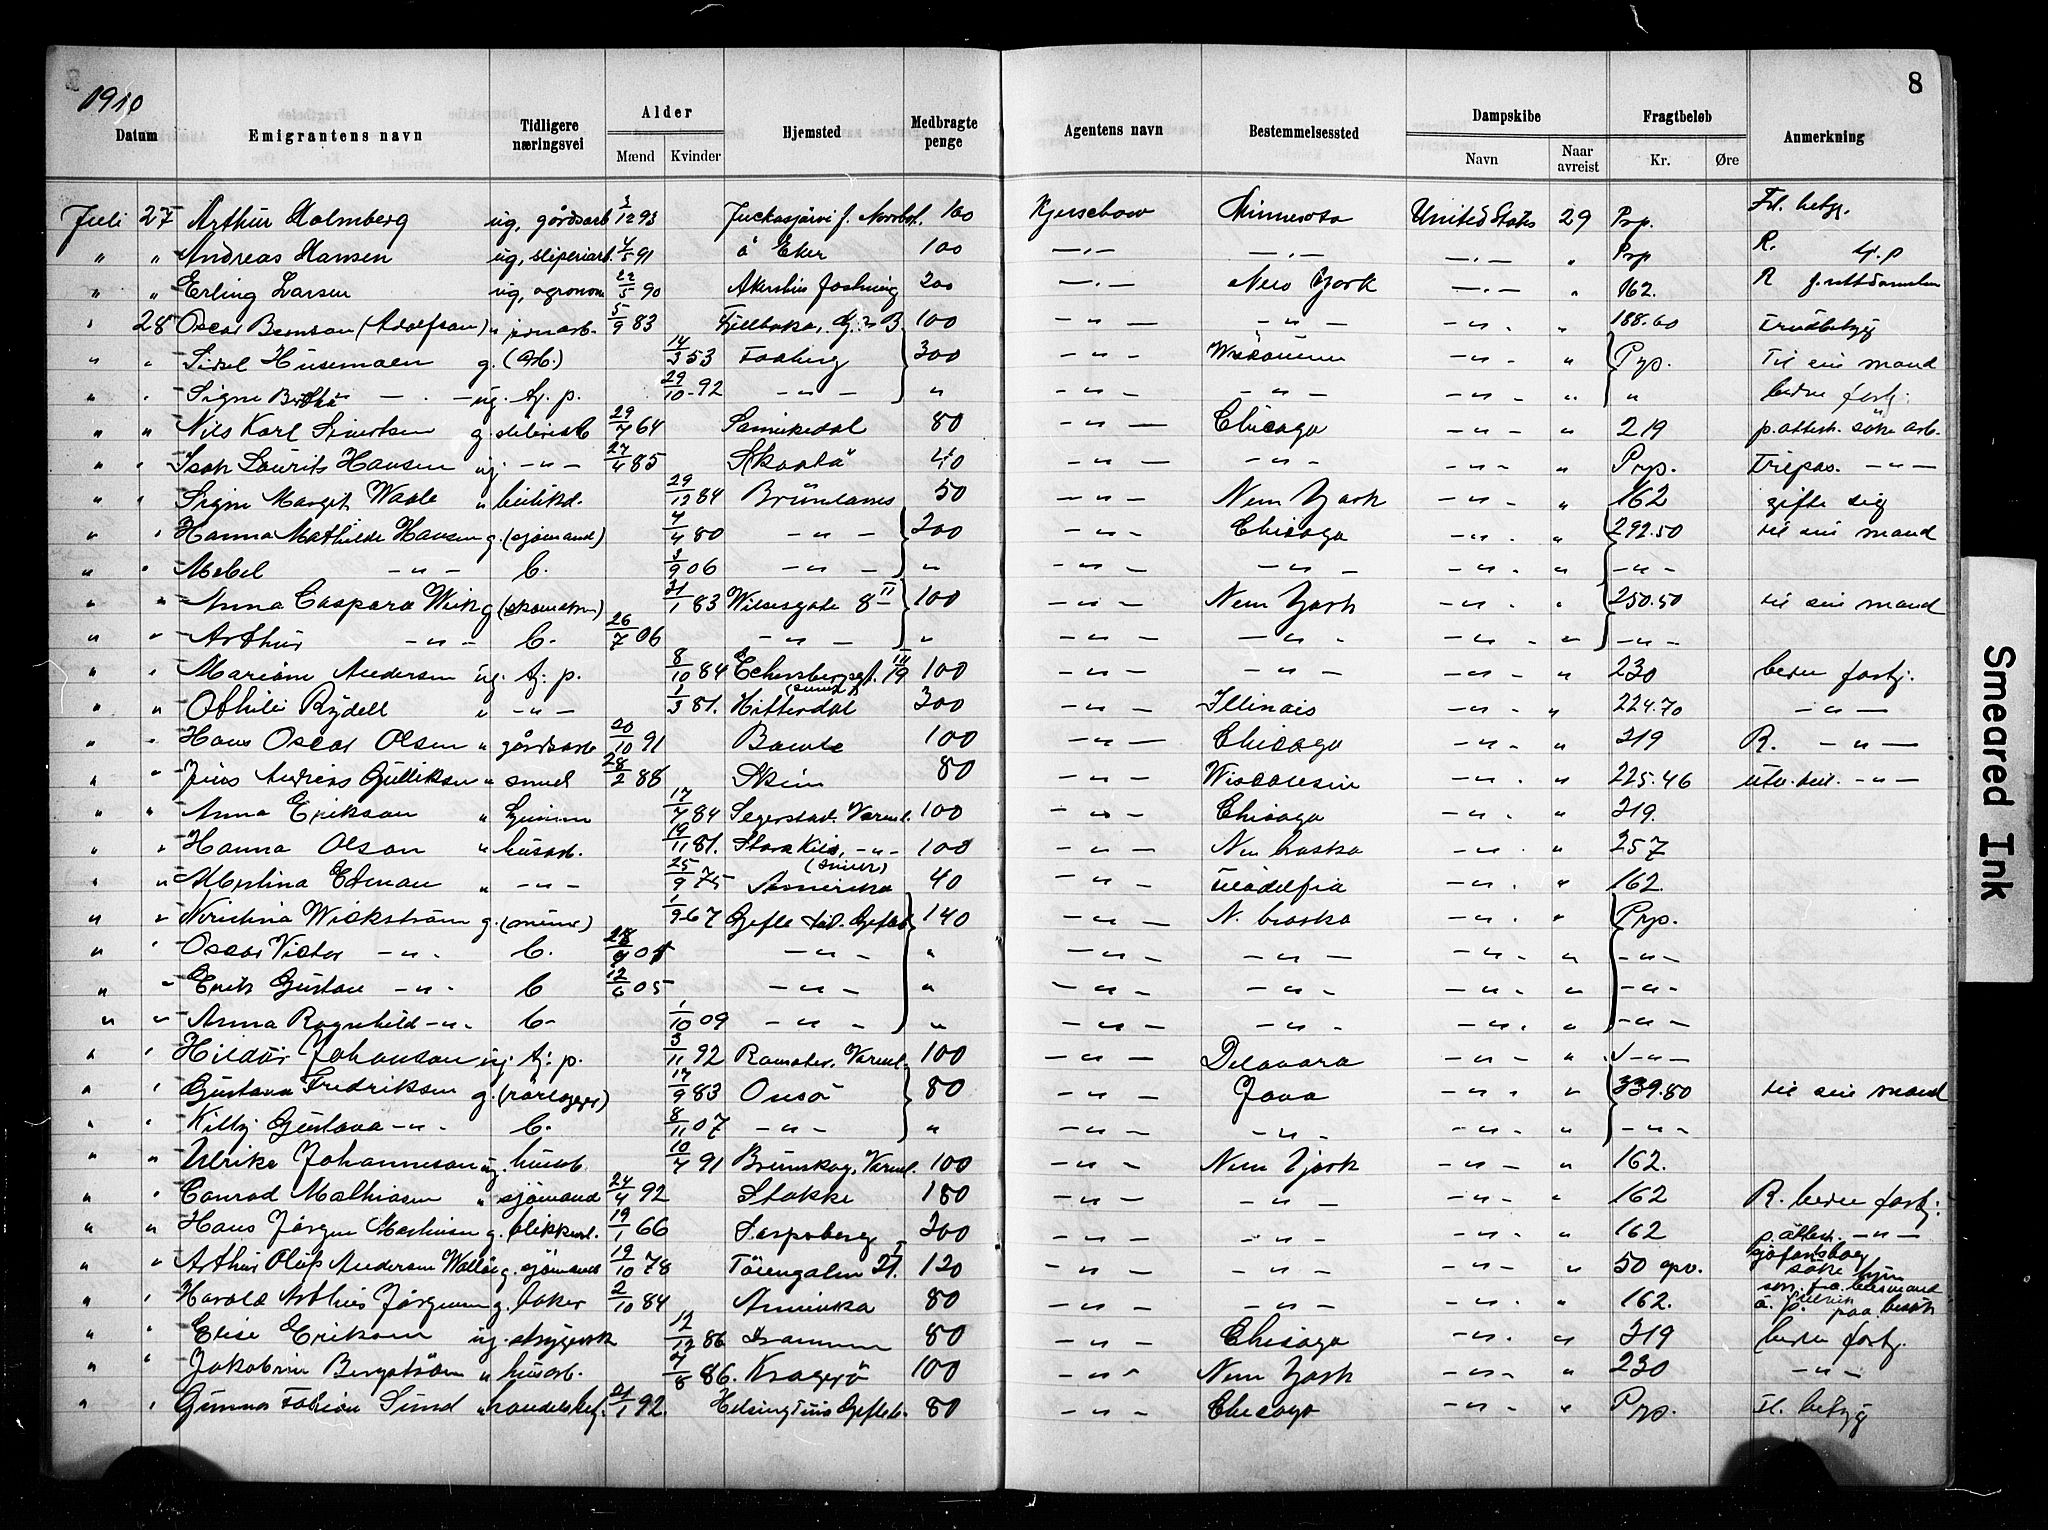 1910
8
Datum | Emigrantens navn | Tidligere næringsvei | Alder Mænd | Kvinder | Hjemsted | Medbragte penge | Agentens navn | Bestemmelsessted | Dampskibe Navn | Naar avreist | Fragtbeløb Kr. | Øre | Anmerkning
Juli 27 Arthur Holmberg ug, gårdsarb 3/12 93 Juckasjärvi f. Norrbot. 100 Kjerschow Minnesota United States 29 Prp. Fl. betyg.
" " Andreas Hansen ug, sliperiarb. 4/5 91 ö Eker 100 —"— —"— —"— " Prp R. tj. p
" " Erling Larsen ug, agronom 22/5 90 Akershus 200 —"— New York —"— " 162. R
" 28 Oscar Bernson (Adolfson) " jernarb. 5/9 83 Fjellbaka, G. o B 100 —"— —"— —"— " 188.60 Friebetyg
" " Sidsel Husemoen g. (Arb.) 14/3 53 Faaberg 300 —"— Wisconsin —"— " Prp. til sin mand
" " Signe Bertha —"— ug. tj. p. 29/10 92 —"— " —"— —"— —"— " " bedre fortj.
" " Nils Karl Sivertsen g. sliperiarb 29/7 64 Sannikedal 80 —"— Chicago —"— " 219 p. attest. söke arb.
" " Isak Laurits Hansen ug. —"— 27/4 85 Skaatö 40 —"— —"— —"— " Prp. Fripas. —"—
" " Signe Margit Waale " butikd. 29/12 84 Brunlanes 50 —"— New York —"— " 162 gifte sig
" " Hanna Mathilde Hansen g. (sjömand) 4/4 80 —"— 200 —"— Chicago —"— " 292.50 til sin mand
" " Mabel —"— b. 3/9 06 —"— " —"— —"— —"— " —"—
" " Anna Caspara Wiik g (skomaker) 31/1 83 Wilsesgate 8 II 100 —"— New York —"— " 250.50 til sin mand
" " Arthur —"— b. 26/7 06 —"— " —"— —"— —"— " —"—
" " Mariane Andersen ug. tj. p. 8/10 84 Eckersbergsgt. 19 III 100 —"— —"— —"— " 230 bedre fortj.
" " Othilie Rydell " —"— 1/3 81. Hitterdal 300 —"— Illinois —"— " 224.70 —"—
" " Hans Oscar Olsen " gårdsarb 20/10 91 Bamle 100 —"— Chicago —"— " 219 R. —"—
" " Jens Andreas Gulliksen " smed 28/2 88 Skien 80 —"— Wisconsin —"— " 225.46 —"—
" " Anna Erikson " 17/7 84 Segerstad. Verml. 100 —"— Chicago —"— " 219.
" " Hanna Olson " husarb. 19/11 81. Stora Kil, —"— 100 —"— Nebraska —"— " 257
" " Albertina Edman " —"— 25/9 75 Amerika 40 —"— Filadelfia —"— " 162.
" " Kristina Wickström g. 1/9 67 Gefle stad. Gefleb 140 —"— N. braska —"— " Prp.
" " Oscar Victor —"— b. —"— " —"— —"— —"— " —"—
" " Erik Gustav —"— b 12/6 05 —"— " —"— —"— —"— " —"—
" " Anna Ragnhild —"— b. 1/10 09 —"— " —"— —"— —"— " —"—
" " Hildur Johanson ug. tj. p. 3/11 92 Ransäter. Verml. 100 —"— Delavara —"— " —"—
" " Gustava Fredriksen g. (rörlægger) 17/9 83 Onsö 80 —"— Java —"— " 339.80 til sin mand
" " Kitty Gustava —"— b. 8/11 07 —"— " —"— —"— —"— " —"—
" " Ulrika Johanneson ug. husarb. 10/7 91 Brunskog, Verml. 100 —"— New York —"— " 162.
" " Conrad Mathiasen " sjömand 24/4 92 Stokke 180 —"— —"— —"— " 162 R. bedre fortj.
" " Hans Jörgen Mathisen g. blikkensl. 19/1 66 Sarpsborg 200 —"— —"— —"— " 162 p. attest. —"—
" " Arthur Oluf Andersen g. sjömand 19/10 78 Töiengaten 21. I 120 —"— —"— —"— " 50 opv. sjöfartsbog söke hyre
" " Harald Arthur Jörgensen g. baker 2/10 84 Amerika 80 —"— —"— —"— " 162. paa besök
" " Elise Erikson ug. strygersk 12/12 86 Drammen 80 —"— Chicago —"— " 219 bedre fortj.
" " Jakobine Bergström " husarb. 7/8 86. Kragerö 100 —"— New York —"— " 230 —"—
" " Gunnar Fabian Sund " handelsbetj. 21/1 92. Helsingtuna Gefleb. 80 —"— Chicago —"— " Prp. Fl. betyg
Smeared Ink